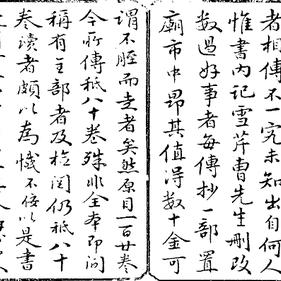 者相傳不一究未知出自何人
惟書内記雪芹曹先生刪改
数過好事者每傳抄一部置
廟市中昂其值得数十金可
謂不脛而走者矣然原目一百廿卷
今所傳秪八十卷殊非全本即间
稱有全部者及檢閱仍秪八十
卷讀者頗以為憾不佞以是書